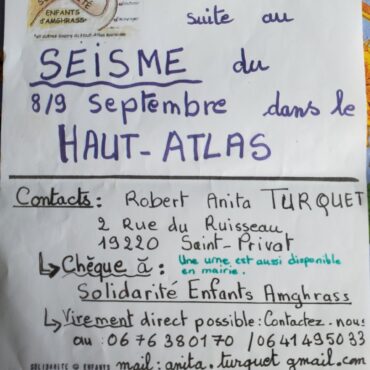 SOLIDARITÉ
ENFANTS
d'AMGHRASS
suite au
SEISME du
8/9 septembre dans le
HAUT-ATLAS
Contacts: Robert Anita TURQUET
2 Rue du Ruisseau
19220 Saint-Privat
↳ Chèque à: Une urne est aussi disponible
en mairie.
Solidarité Enfants Amghrass
↳ Virement direct possible: Contactez-nous
au: 06 76 38 01 70 / 06 41 49 50 33
SOLIDARITE ENFANTS mail: anita.turquot gmail.com